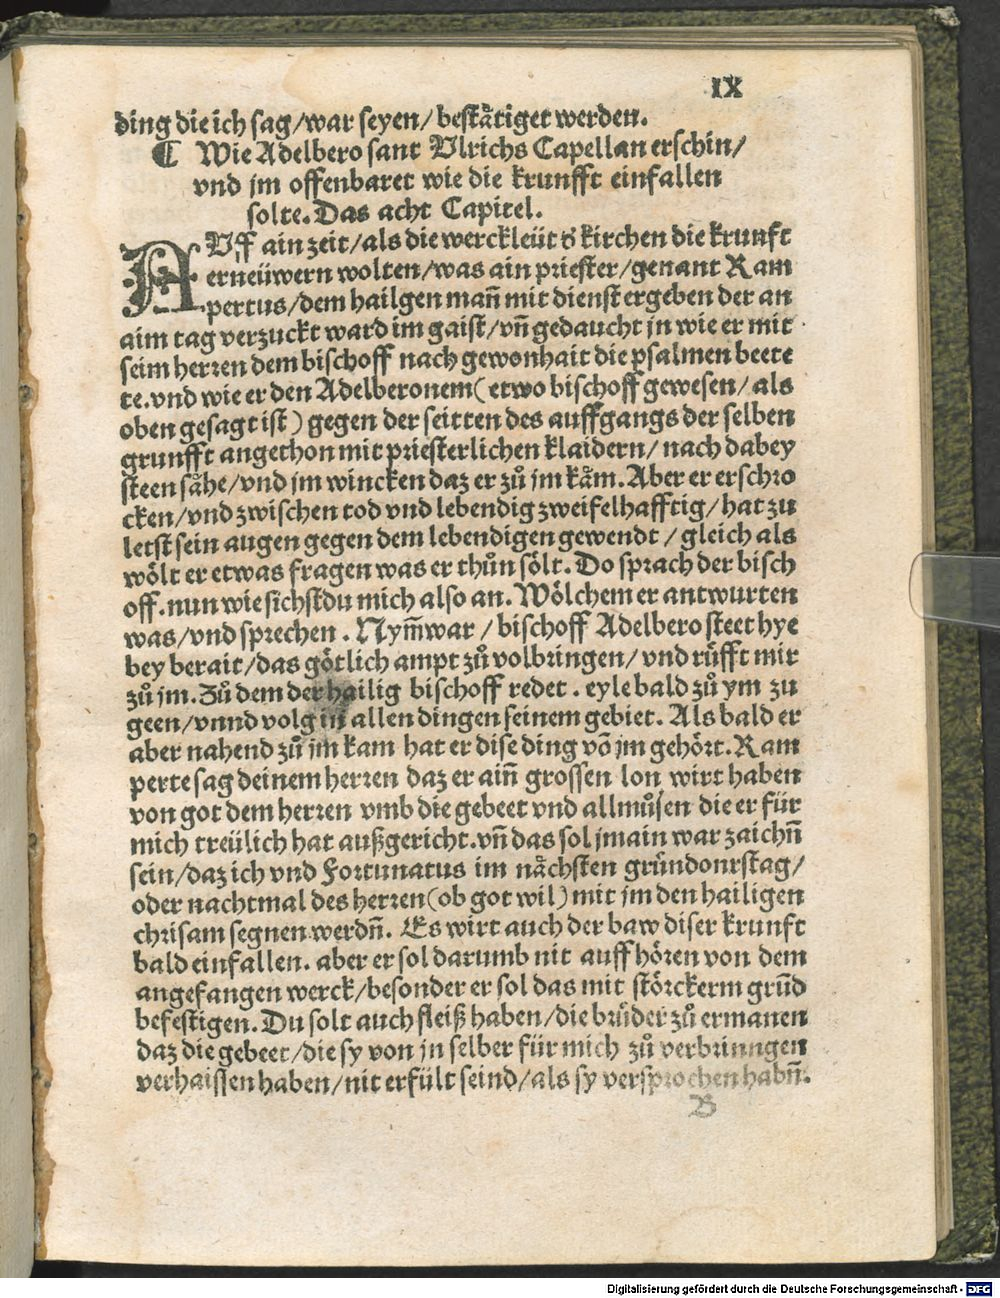 IX
ding die ich sag/war seyen/beståtiget werden.
¶ Wie Adelbero sant Ulrichs Capellan erschin/
vnd jm offenbaret wie die krunfft einfallen
solte. Das acht Capitel.
AUff ain zeit/als die werckleüt d' kirchen die krunft
erneüwern wolten/was ain priester/genant Ram
pertus/dem hailgen man̄ mit dienst ergeben der an
aim tag verzuckt ward im gaist/vn̄ gedaucht jn wie er mit
seim herren dem bischoff nach gewonhait die psalmen beete
te.vnd wie er den Adelberonem(etwo bischoff gewesen/als
oben gesagt ist) gegen der seitten des auffgangs der selben
grunfft angethon mit priesterlichen klaidern/nach dabey
steen såhe/vnd jm wincken daz er zů jm kåm.Aber er erschro
cken/vnd zwischen tod vnd lebendig zweifelhafftig/hat zu
letst sein augen gegen dem lebendigen gewendt/gleich als
wölt er etwas fragen was er thůn sölt.Do sprach der bisch
off.nun wie sichstdu mich also an.Wölchem er antwurten
was/vnd sprechen.Nym̄ war/bischoff Adelbero steet hye
bey berait/das götlich ampt zů volbringen/vnd rüfft mir
zů jm.Zů dem der hailig bischoff redet.eyle bald zů ym zu
geen/vnnd volg in allen dingen seinem gebiet. Als bald er
aber nahend zů jm kam hat er dise ding vō jm gehört.Ram
perte sag deinem herren daz er ain̄ grossen lon wirt haben
von got dem herren vmb die gebeet vnd allmůsen die er für
mich treülich hat außgericht.vn̄ das sol jmain war zaichn̄
sein/daz ich vnd Fortunatus im nåchsten gründonrstag/
oder nachtmal des herren(ob got wil)mit jm den hailigen
chrisam segnen werdn̄. Es wirt auch der baw diser krunft
bald einfallen. aber er sol darumb nit auffhören von dem
angefangen werck/besonder er sol das mit störckerm grūd
befestigen.Du solt auch fleiß haben/die brůder zů ermanen
daz die gebeet/die sy von jn selber für mich zů verbrinngen
verhaissen haben/nit erfült seind/als sy versprochen habn̄.
B
Digitalisierung gefördert durch die Deutsche Forschungsgemeinschaft - DFG